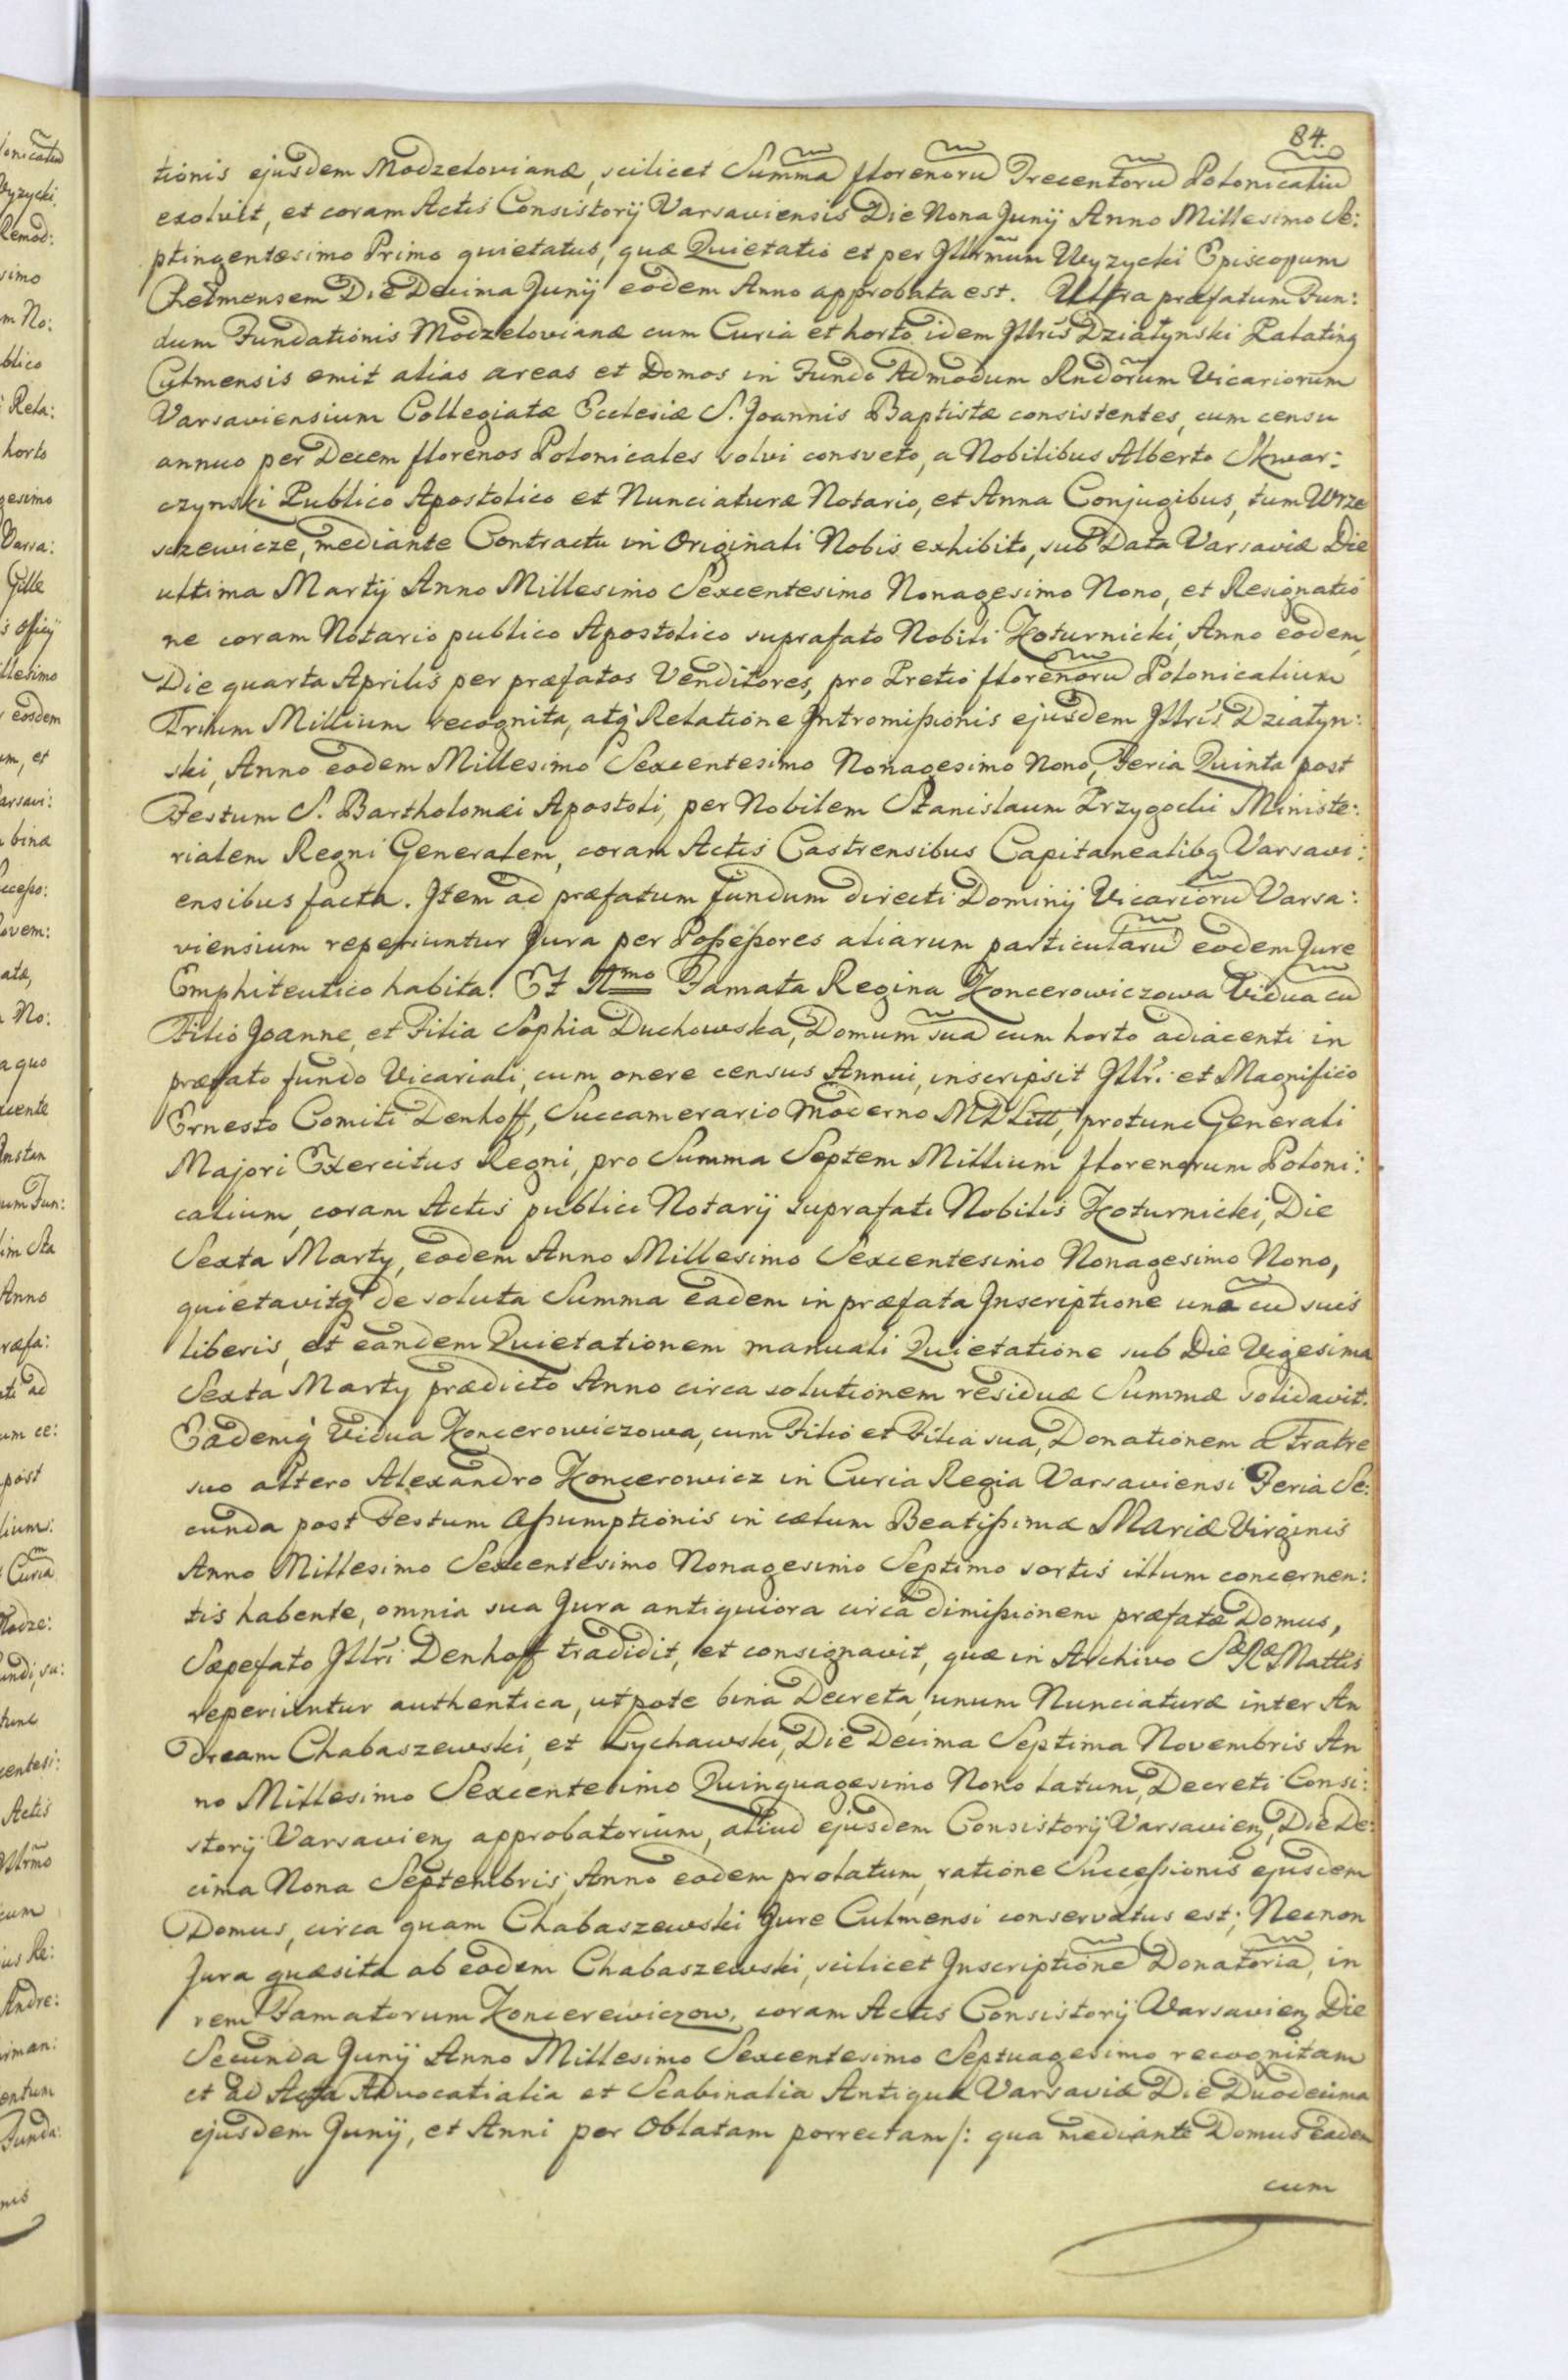 84.
tionis ejusdem Modzelovianæ, scilicet Summa florenorũ Trecentorũ Polonicaliũ
exolvit, et coram Actis Consistorij Varsaviensis Die Nona Junij Anno Millesimo Se:
ptingentesimo Primo quietatus, quæ Quietatio et per Jllrm̃um Wyzycki Episcopum
Chelmensem Die Decima Junij eodem Anno approbata est. Ultra præfatum Fun:
dum Fundationis Modzelovianæ cum Curia et horto idem Jllris Dziatynski Palatinq
Culmensis emit alias areas et Domos in Fundo Admodum Rndorum Vicariorum
Varsaviensium Collegiatæ Ecclesiæ S. Joannis Baptistæ consistentes, cum censu
annuo per Decem florenos Polonicales solvi consveto, a Nobilibus Alberto Skwar:
czynski Publico Apostolico et Nunciaturæ Notario, et Anna Conjugibus, tum Wrze
szewicze, mediante Contractu in Originali Nobis exhibito, sub Data Varsaviæ Die
ultima Martij Anno Millesimo Sexcentesimo Nonagesimo Nono, et Resignatio
ne coram Notario publico Apostolico suprafato Nobili Koturnicki, Anno eodem,
Die quarta Aprilis per præfatos Venditores, pro Pretio florenorũ Polonicalium
Trium Millium recognita, atq Relatione Jntromissionis ejusdem Jllris Dziatyn:
ski, Anno eodem Millesimo Sexcentesimo Nonagesimo Nono, Feria Quinta post
Festum S. Bartholomæi Apostoli, per Nobilem Stanislaum Przygocki Ministe:
rialem Regni Generalem, coram Actis Castrensibus Capitanealibq Varsavi:
ensibus facta. Jtem ad præfatum fundum directi Dominij Vicariorũ Varsa:
viensium reperiuntur Jura per Possessores aliarum particularũ eodem Jure
Emphiteutico habita. Et Jmo Famata Regina Koncerowiczowa Vidua cũ
Filio Joanne, et Filia Sophia Duchowska, Domum suã cum horto adiacenti in
præfato fundo Vicariali, cum onere census Annui, inscripsit Jllri et Magnifico
Ernesto Comiti Denhoff, Succamerario Moderno MDLitt, protunc Generali
Majori Exercitus Regni, pro Summa Septem Millium florenorum Poloni:
calium, coram Actis publici Notarij suprafati Nobilis Koturnicki, Die
Sexta Marty, eodem Anno Millesimo Sexcentesimo Nonagesimo Nono,
quietavitq de soluta Summa eadem in præfata Jnscriptione una cũ suis
liberis, et eandem Quietationem manuali Quietatione sub Die Vigesima
Sexta Marty prædicto Anno circa solutionem residuæ Summæ solidavit.
Eademq Vidua Koncerowiczowa, cum Filio et Filia sua, Donationem a Fratre
suo altero Alexandro Koncerowicz in Curia Regia Varsaviensi Feria Se:
cunda post Festum Assumptionis in cœlum Beatissimæ Mariæ Virginis
Anno Millesimo Sexcentesimo Nonagesimo Septimo sortis illum concernen:
tis habente, omnia sua Jura antiquiora circa dimissionem præfatæ Domus,
Sæpefato Jllri Denhoff tradidit, et consignavit, quæ in Archivo Sæ Ræ Mattis
reperiuntur authentica, utpote bina Decreta, unum Nunciaturæ inter An
dream Chabaszewski, et Lychawski, Die Decima Septima Novembris An
no Millesimo Sexcentesimo Quinquagesimo Nono latum, Decreti Consi:
storij Varsavienq approbatorium, aliud ejusdem Consistorij Varsavienq, Die De:
cima Nona Septembris, Anno eodem prolatum, ratione Successionis ejusdem
Domus, circa quam Chabaszewski Jure Culmensi conservatus est; Necnon
Jura quæsita ab eodem Chabaszewski, scilicet Jnscriptionẽ Donatoriã, in
rem Famatorum Koncerewiczow, coram Actis Consistorij Varsavienq Die
Secunda Junij Anno Millesimo Sexcentesimo Septuagesimo recognitam
et ad Acta Advocatialia et Scabinalia Antiquæ Varsaviæ Die Duodecima
ejusdem Junij, et Anni per Oblatam porrectam /: qua mediante Domus Eadem
cum